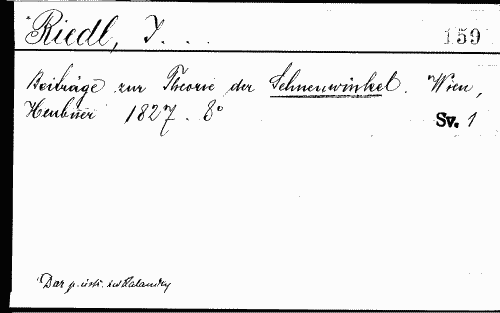 Riedl, J. . .
159
Beiträge zur Theorie der Sehnenwinkel. Wien,
Heubner 1827. 8°
Sv. 1
Dar p.